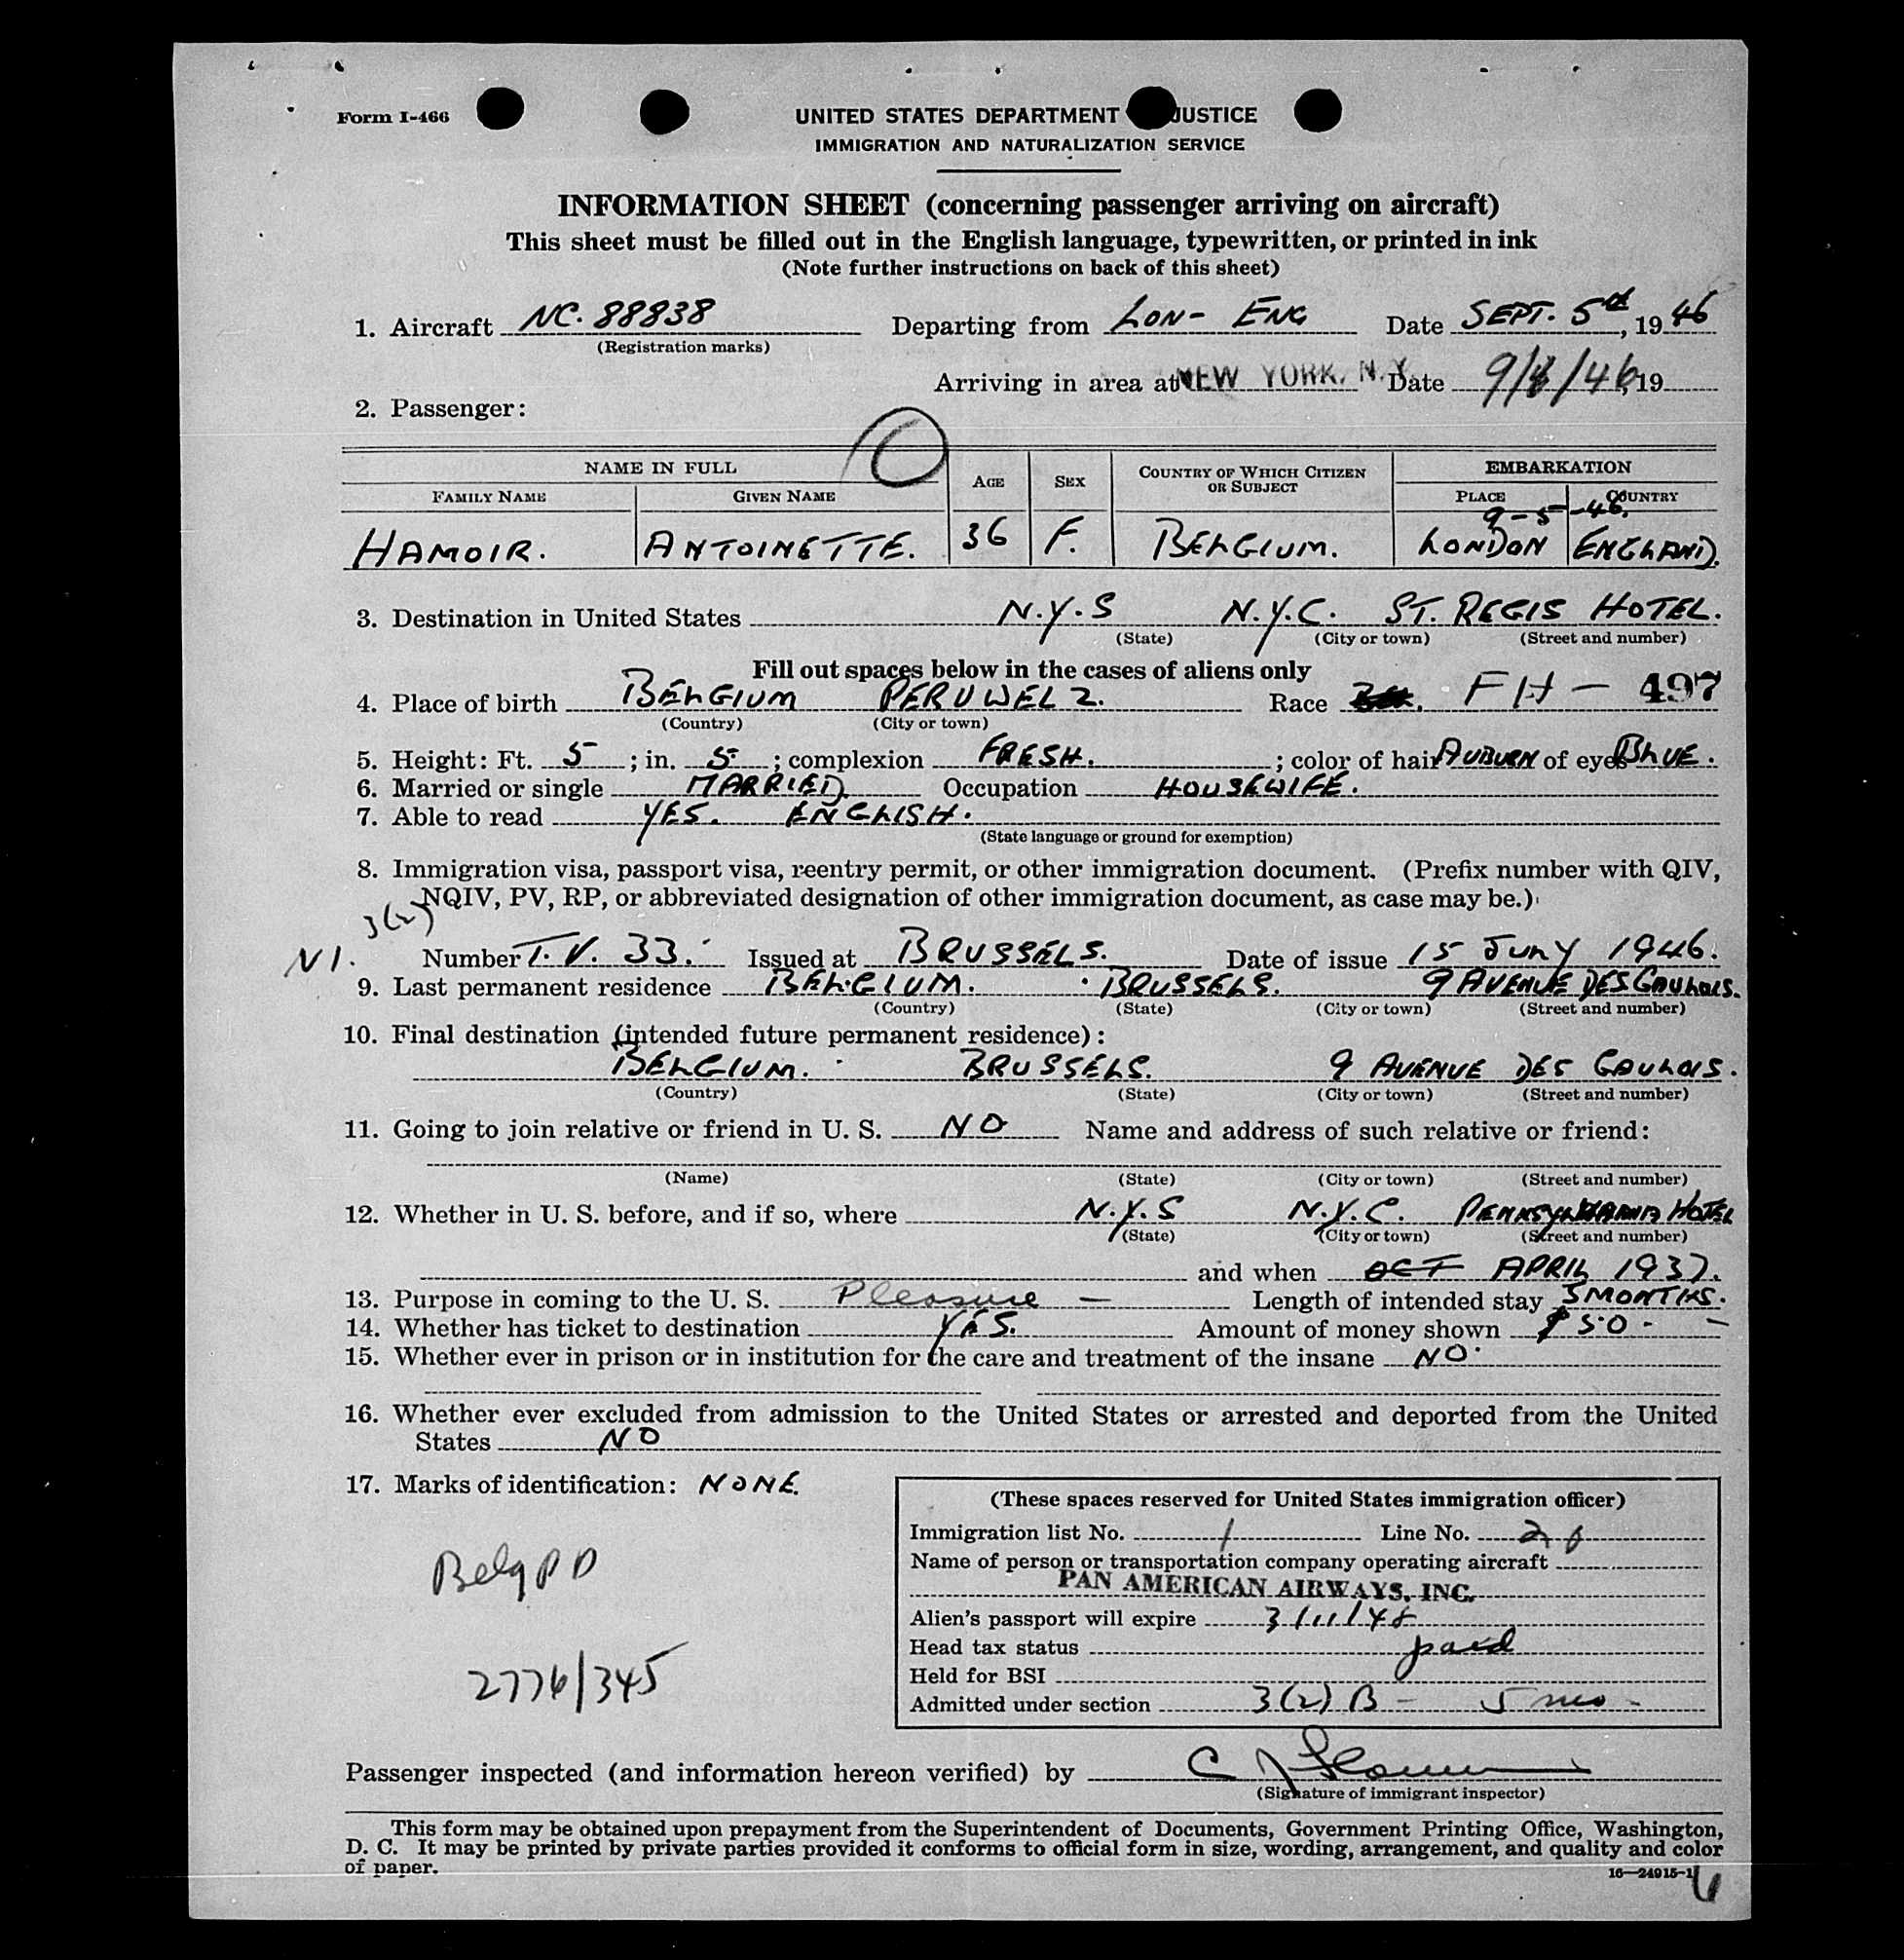 Form I-466
UNITED STATES DEPARTMENT JUSTICE
IMMIGRATION AND NATURALIZATION SERVICE
INFORMATION SHEET (concerning passenger arriving on aircraft)
This sheet must be filled out in the English language, typewritten, or printed in ink
(Note further instructions on back of this sheet)
1. Aircraft NC. 88838 Departing from LON- ENG Date SEPT. 5th, 19 46
(Registration marks)
Arriving in area at NEW YORK, N.Y. Date 9/ /46, 19
2. Passenger:
NAME IN FULL AGE SEX COUNTRY OF WHICH CITIZEN OR SUBJECT EMBARKATION
FAMILY NAME GIVEN NAME PLACE COUNTRY
9-5-46.
HAMOIR. ANTOINETTE. 36 F. BELGIUM. LONDON ENGLAND.
3. Destination in United States N.Y.S N.Y.C. ST. REGIS HOTEL.
(State) (City or town) (Street and number)
Fill out spaces below in the cases of aliens only
4. Place of birth BELGIUM PERUWELZ. Race FH - 497
(Country) (City or town)
5. Height: Ft. 5 ; in. 5 ; complexion FRESH. ; color of hair AUBURN of eyes BLUE.
6. Married or single MARRIED. Occupation HOUSEWIFE.
7. Able to read YES. ENGLISH.
(State language or ground for exemption)
8. Immigration visa, passport visa, reentry permit, or other immigration document. (Prefix number with QIV,
NQIV, PV, RP, or abbreviated designation of other immigration document, as case may be.)
3(2)
NI. Number T.V. 33. Issued at BRUSSELS. Date of issue 15 JULY 1946.
9. Last permanent residence BELGIUM. BRUSSELS. 9 AVENUE DES GAULOIS.
(Country) (State) (City or town) (Street and number)
10. Final destination (intended future permanent residence):
BELGIUM. BRUSSELS. 9 AVENUE DES GAULOIS.
(Country) (State) (City or town) (Street and number)
11. Going to join relative or friend in U. S. NO Name and address of such relative or friend:
(Name) (State) (City or town) (Street and number)
12. Whether in U. S. before, and if so, where N.Y.S N.Y.C. PENNSYLVANIA HOTEL
(State) (City or town) (Street and number)
and when OCT APRIL 1937.
13. Purpose in coming to the U. S. Pleasure - Length of intended stay 5 MONTHS.
14. Whether has ticket to destination YES. Amount of money shown $50.-
15. Whether ever in prison or in institution for the care and treatment of the insane NO.
16. Whether ever excluded from admission to the United States or arrested and deported from the United
States NO
17. Marks of identification: NONE.
(These spaces reserved for United States immigration officer)
Immigration list No. 1 Line No.
Belg PP
Name of person or transportation company operating aircraft
PAN AMERICAN AIRWAYS, INC.
Alien's passport will expire 3/11/48
Head tax status paid
2776/345
Held for BSI
Admitted under section 3(2) B - 5 mo -
Passenger inspected (and information hereon verified) by
(Signature of immigrant inspector)
This form may be obtained upon prepayment from the Superintendent of Documents, Government Printing Office, Washington,
D. C. It may be printed by private parties provided it conforms to official form in size, wording, arrangement, and quality and color
of paper.
16—24915-1